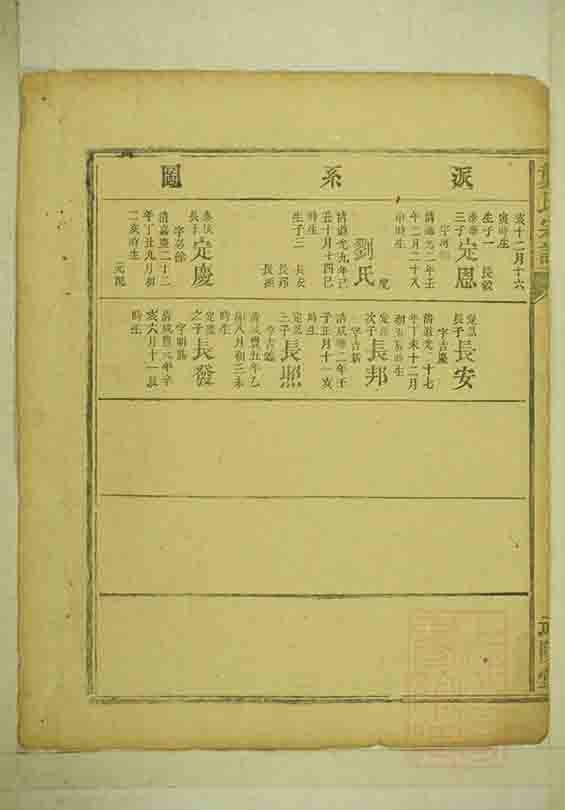 派系圖
亥十二月十六
寅時生
生子一 長發
三子定恩
清道光二年壬
午二月二十八
申時生
劉氏
清道光九年己
丑十月十四巳
時生
生子三 長安
長邦
長照
長子定慶
字必餘
清嘉慶二十二
年丁丑九月初
二亥時生
定恩
長子長安
字吉慶
清道光二十七
年丁未十二月
時生
定恩
次子長邦
字吉新
清咸豐二年壬
子正月十一亥
時生
定恩
三子長照
字吉
清咸豐五年乙
卯八月初三未
時生
定慶
之子長發
字明
清咸豐元年辛
亥六月十一辰
時生
氏宗譜